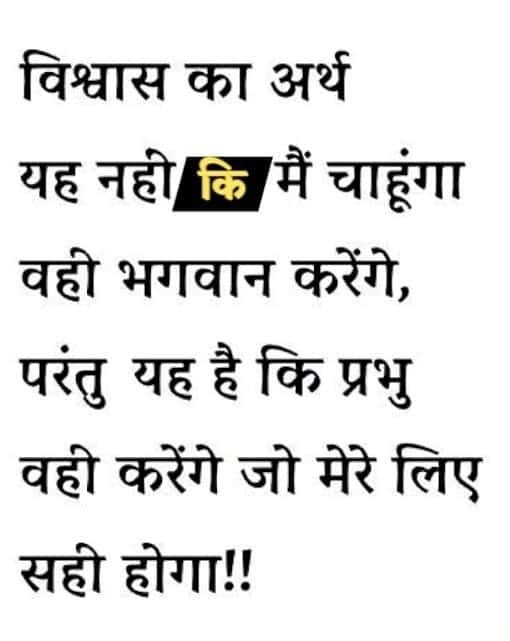 विश्वास का अर्थ
यह नही कि मैं चाहूंगा
वही भगवान करेंगे,
परंतु यह है कि प्रभु
वही करेंगे जो मेरे लिए
सही होगा!!